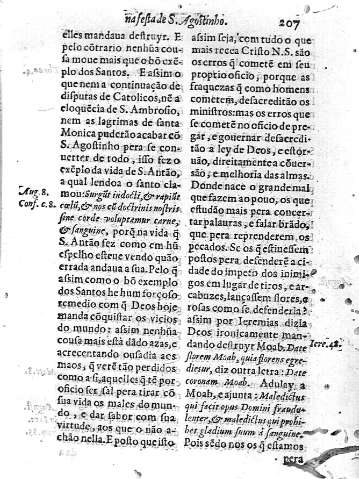 na festa de S. Agostinho. 207
elles mandaua destruyr. E
pelo cõtrario nenhũa cou-
sa moue mais que o bõ exẽ-
plo dos Santos. E assim o
que nem a continuação de
disputas de Catolicos, nẽ a
eloquẽcia de S. Ambrosio,
nem as lagrimas de santa
Monica puderão acabar cõ
S. Agostinho pera se con-
uerter de todo, isso fez o
exẽplo da vida de S. Antão,
a qual lendo a o santo cla-
mou: Surgũt indocti, & rapiũt
cœlũ, & nos cũ doctrinis nostris
sine corde voluptamur carne,
& sanguine, porq̃ na vida q̃
S. Antão fez como em hũ
espelho esteue vendo quão
errada andaua a sua. Pelo q̃
assim como o bõ exemplo
dos Santos he hum forçoso
remedio com q̃ Deos hoje
manda cõquistar os vicios
do mundo: assim nenhũa
cousa mais està dãdo azas, e
acrecentando ousadia aos
maos, q̃ verẽ tão perdidos
como a si, aquelles q̃ tẽ por
officio ser sal pera tirar cõ
sua vida os males do mun-
do, e dar sabor com sua
virtude, aos que o não a-
chão nella. E posto que isto
Aug. 8.
Conf. c. 8.
assim seja, com tudo o que
mais recea Cristo N. S. são
os erros q̃ cometẽ em seu
proprio oficio, porque as
fraquezas q̃ como homens
cometem, desacreditão os
ministros: mas os erros que
se cometẽ no oficio de pre-
gar, e gouernar desacredi-
tão a ley de Deos, e estor-
uão, direitamente a cõuer-
são, e melhoria das almas.
Donde nace o grande mal,
que fazem ao pouo, os que
estudão mais pera concer-
tar palauras, e falar brãdo,
que pera reprenderem os
pecados. Se os q̃ estiuessem
postos pera defenderẽ a ci-
dade do impeto dos inimi-
gos em lugar de tiros, e ar-
cabuzes, lançassem flores, e
rosas como se defenderia?
assim por Ieremias dizia
Deos ironicamente man-
dando destruyr Moab. Date
florem Moab, quia florens egre-
dietur, diz outra letra: Date
coronam Moab. Adulay a
Moab, e ajunta: Maledictus
qui facit opus Domini fraudu-
lenter, & maledictus qui prohi-
bet gladium suum à sanguine.
Pois sẽdo nos os q̃ estamos
pera
Iere. 48.